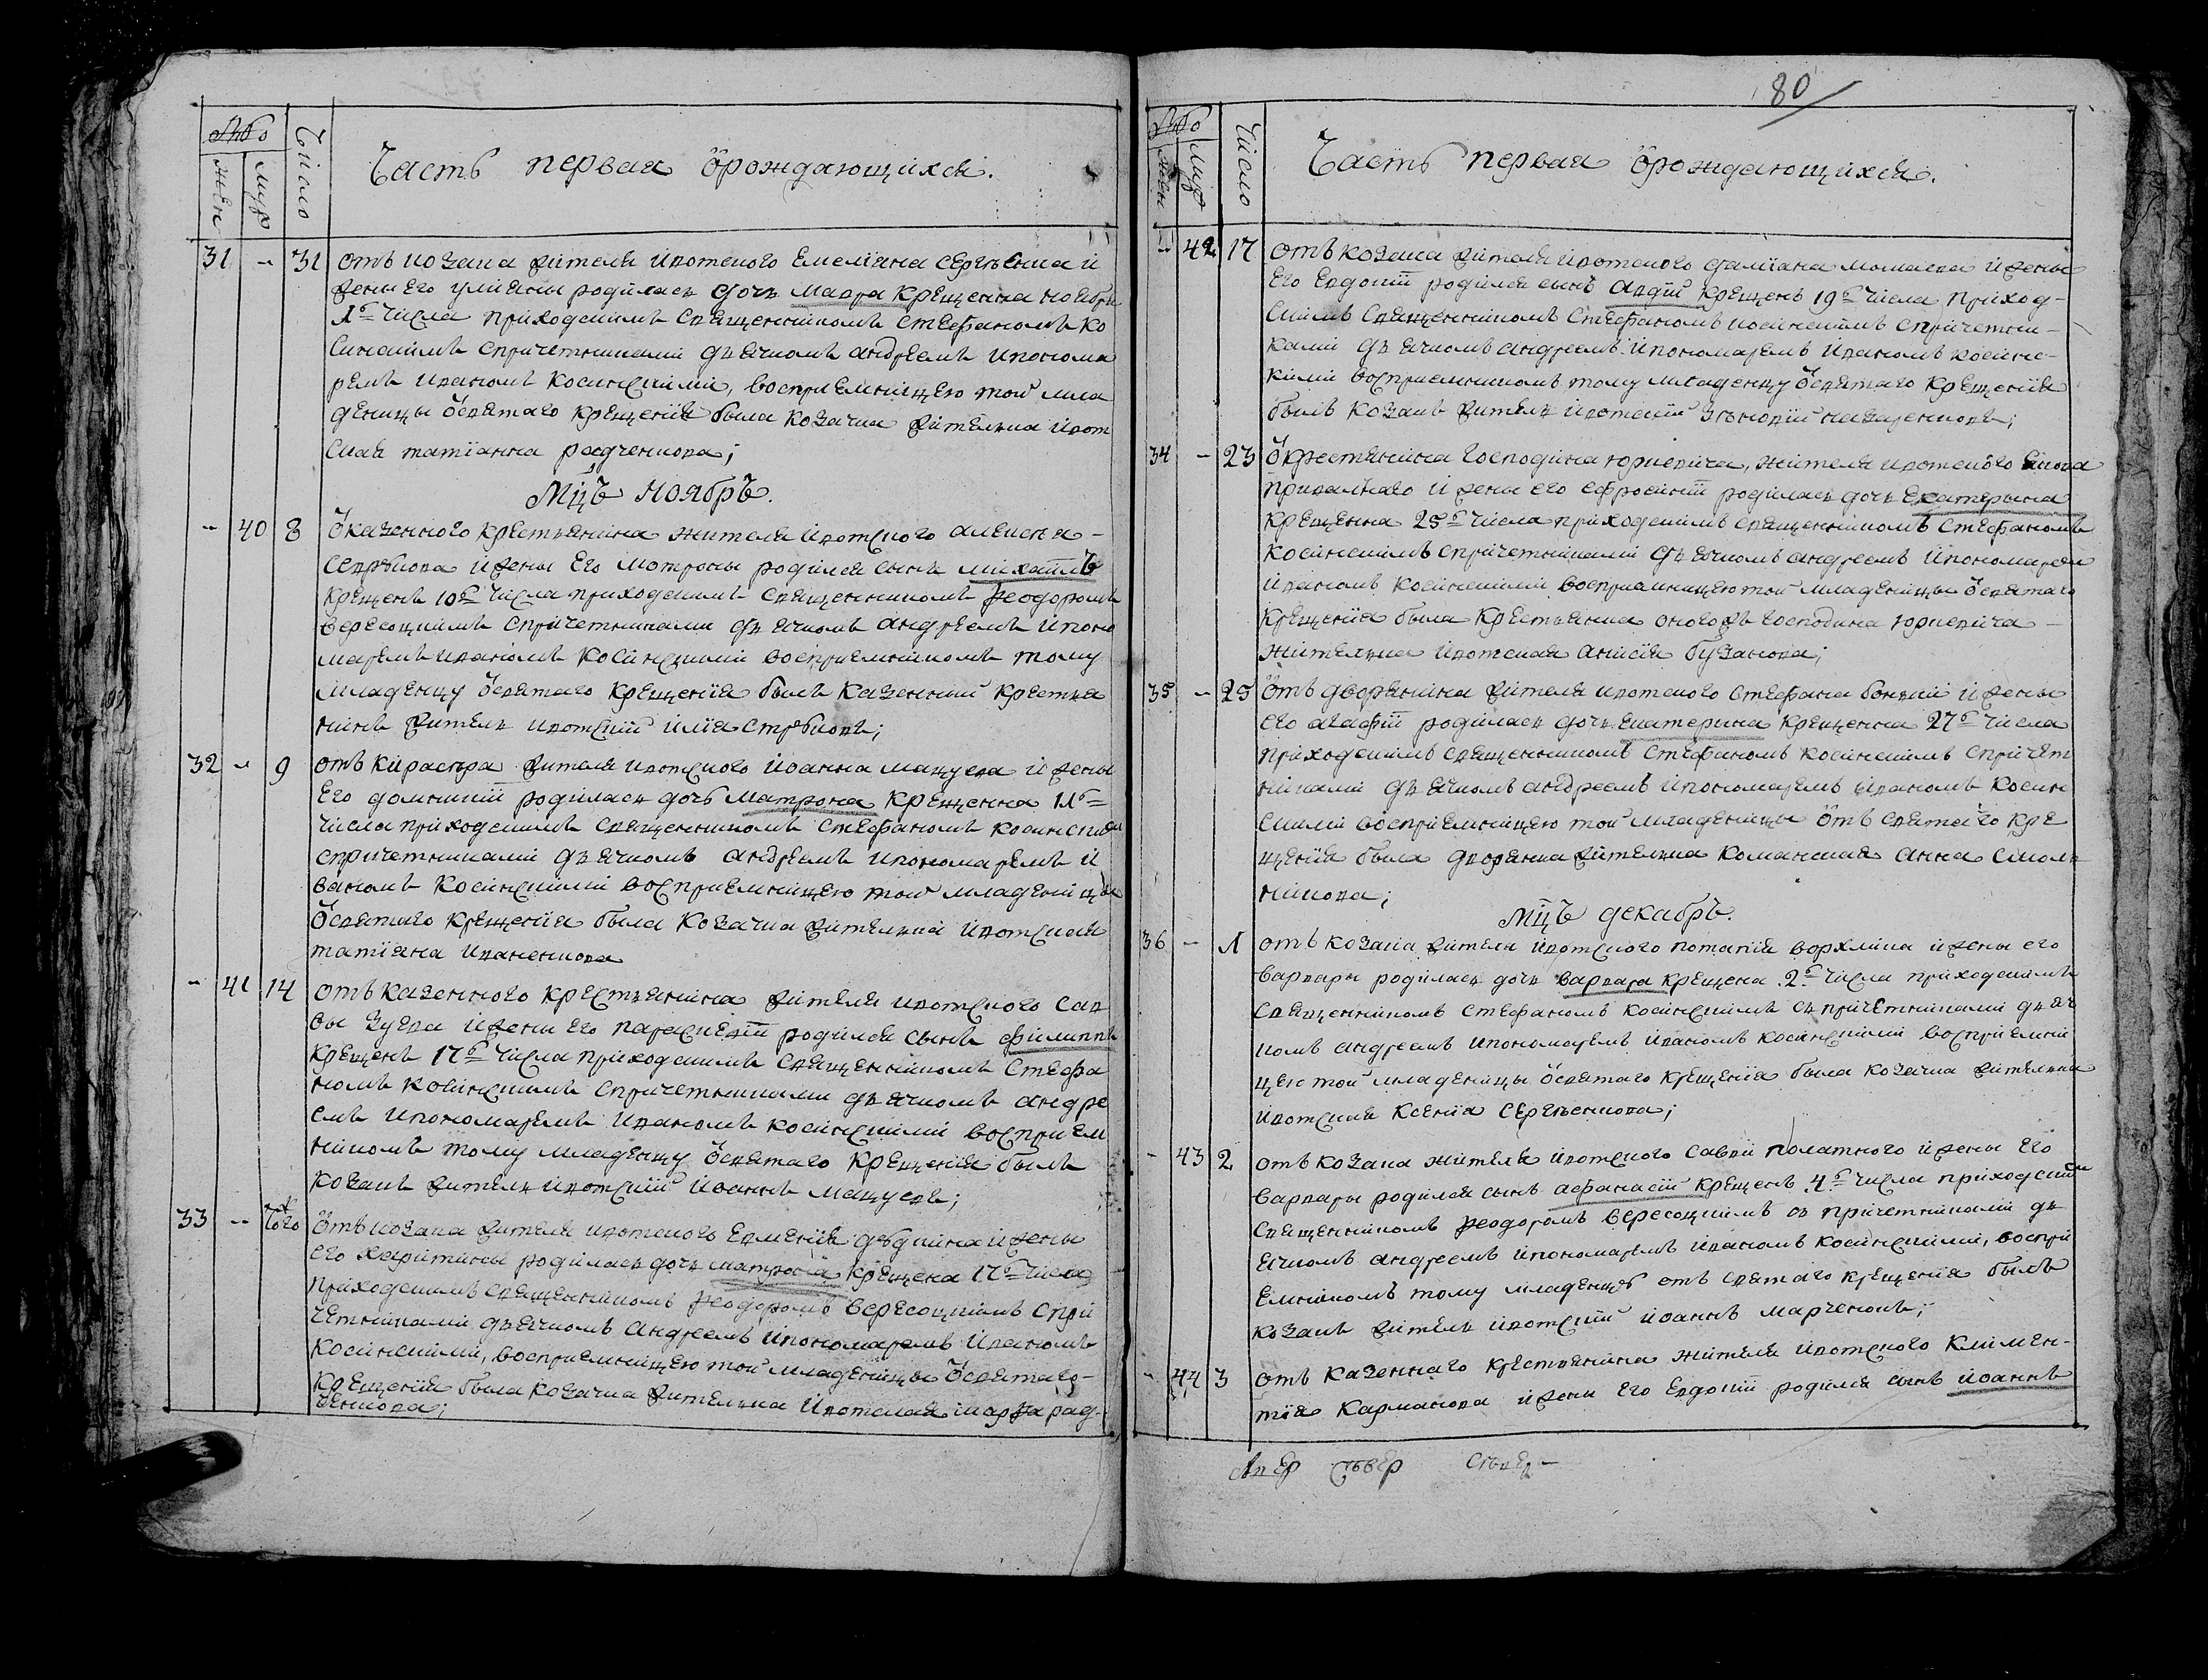 80
Число
жен
муж
Часть первая ѡрождающихся.
31 - 31 отъ козака жителя ивотского Емелiана Сергѣенка и
жены Его улияны родилась дочь Мавра крещенна ноября
1го числа приходскимъ священникомъ Стефаномъ Ко
синскимъ спричетниками дьячкомъ андреемъ ипонома
ремъ иваномъ косинскими, восприемницею той мла
деницы ѿсвятаго крещенiя была козачка жителка ивот
ская татiанна радченкова;
Мцъ ноябрь.
- 40 8 ѿказенного крестьянина жителя ивотского алексея -
жены Его мотроны родился сынъ михаилъ
крещенъ 10го числа приходскимъ священникомъ феодоромъ
вересоцкимъ спричетниками дьячкомъ андреемъ ипоно
маремъ иваномъ косинскими восприемникомъ тому
младенцу ѿсвятаго крещенiя былъ казенный крестья
нинъ житель ивотскiй илiя
32 - 9 отъ жителя ивотского иоанна мацуева и жены
Его домникiи родилась дочь матрона крещенна 11го
числа приходскимъ священникомъ стефаномъ косинскимъ
спричетниками дьячкомъ андреемъ ипономаремъ и
ваномъ косинскими восприемницею той младеницы
ѿсвятаго крещенiя была козачка жителка ивотская
татiяна иваненкова
- 41 14 отъ казенного крестьянина жителя ивотского сав
вы зуева и жены Его параскевiи родился сынъ филиппъ
крещенъ 17го числа приходскимъ священникомъ Стефа
номъ косинскимъ спричетниками дьячкомъ андре
емъ ипономаремъ иваномъ косинскими восприем
никомъ тому младенцу ѿсвятаго крещенiя былъ
козакъ житель ивотскiй иоаннъ мацуевъ;
33 - тогож ѿтъ козака жителя ивотского дѣдкина и жены
его харитины родилась дочь матрона крещена 17го числа
приходскимъ священникомъ феодоромъ вересоцкимъ спри
четниками дьячкомъ андреемъ ипономаремъ иваномъ
косинскими, восприемницею той младеницы ѿсвятаго -
крещенiя была козачка жителка ивотская марфа рад-
ченкова;
Число
жен
муж
Часть первая ѡрождающихся.
- 42 17 отъ козака жителя ивотского дамiана мамаева и жены
Его Евдокiи родился сынъ авдiй крещенъ 19го числа приход-
скимъ священникомъ Стефаномъ косинскимъ спричетни-
ками дьячкомъ андреемъ ипономаремъ иваномъ косинс-
кими восприемникомъ тому младенцу ѿсвятаго крещенiя
былъ козакъ житель ивотскiй назаренковъ;
34 - 23 ѿкрестянина господина юркевича, жителя ивотского
и жены его ефросинiи родилась дочь екатерына
крещенна 25го числа приходскимъ священникомъ Стефаномъ
косинскимъ спричетниками дьячкомъ андреемъ ипономарем
иваномъ косинскими восприемницею той младеницы ѿсвятаго
крещенiя была крестьянка оногожъ господина юркевича -
жителка ивотская анисiя бузанова;
35 - 25 ѿтъ дворянина жителя ивотского Стефана и жены
его агафiи родилась дочь екатерина крещенна 27го числа
приходскимъ священникомъ стефаномъ косинскимъ спричет
никами дьячкомъ андреемъ ипономаремъ иваномъ косин
скими восприемницею той младеницы ѿтъ святаго кре
щенiя была дворянка жителка команская анна
Мцъ декабрь.
36 - 1 отъ козака жителя ивотского потапiя ворхлика и жены его
варвары родилась дочь варвара крещена 2го числа приходскимъ
священникомъ стефаномъ косинскимъ съ причетниками дьяч
комъ андреемъ ипономаремъ иваномъ косинскими восприемни
цею той младеницы ѿсвятаго крещенiя была козачка жителка
ивотская ксенiя сергѣенкова;
- 43 2 отъ козака жителя ивотского саввы полатного и жены его
варвары родился сынъ афанасiй крещенъ 4го числа приходским
священникомъ феодоромъ вересоцкимъ съ причетниками дь
ячкомъ андреемъ ипономаремъ иваномъ косинскими, воспри
емникомъ тому младенцу отъ святаго крещенiя былъ
козакъ житель ивотскiй иоаннъ марченокъ;
- 44 3 отъ казеннаго крестьянина жителя ивотского климен-
тiя карманова и жены Его Евдокiи родился сынъ иоаннъ